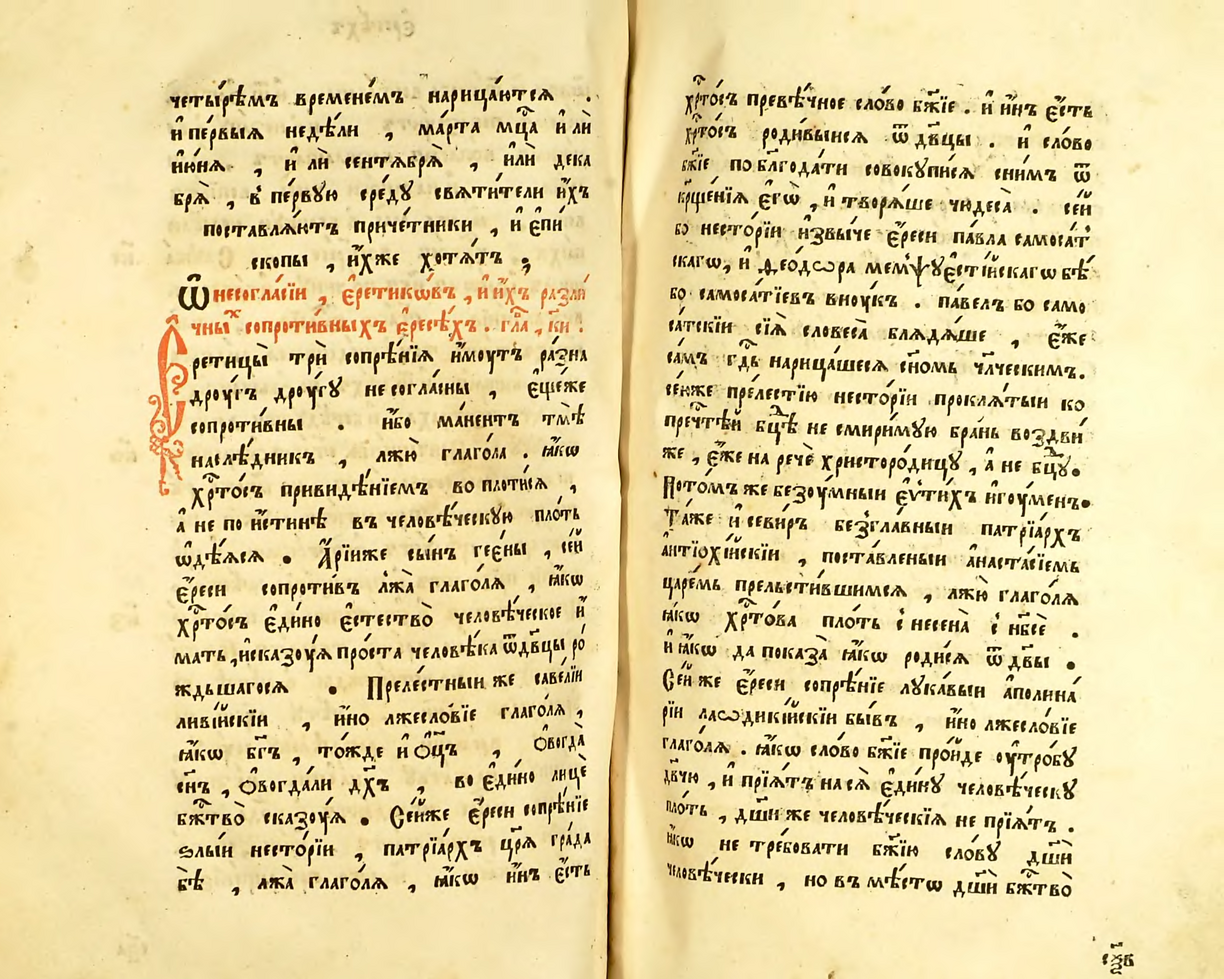 четы́рѣмъ временє́мъ нарица́ютсѧ .
и҆ пе́рвыѧ недѣ́ли , ма́рта мц҃а и҆ лѝ
і҆ю́нѧ , и҆ лѝ сентѧбрѧ̀ , и҆лѝ дека
брѧ̀ , в̾ пе́рвую сре́ду свѧти́тели и҆́хъ
поставлѧ́ютъ приче́тники , и҆ є҆пи́
скопы , и҆́хже хотѧ́тъ ;
Ѿ несогла́сїи , є҆ретикѡ́въ , и҆ и҆́хъ разли́
чныⷯ сопроти́вныхъ є҆́ресѣхъ . гла̀ , к҃и :
Є҆ретицы̀ трѝ сопрѣ́нїѧ и҆́моутъ ра́зна
дроу́гъ дроу́гꙋ несогла́сны , є҆ще́же
сопроти́вны . и҆́бо ма́нентъ тмѣ̀
наслѣ́дникъ , лжю̀ глаго́ла . ꙗ҆́кѡ
хрⷭ҇то́съ привидѣ́нїемъ во плоти́сѧ ,
а҆ не по и҆́стинѣ въ человѣ́ческꙋю пло́ть
ѡ҆дѣ́ѧсѧ . А҆́рїиже сы́нъ гее́ны , се́й
є҆́реси сопроти́въ лжа̀ глаго́лѧ , ꙗ҆́кѡ
хрⷭ҇то́съ є҆ди́но є҆стество̀ человѣ́ческое и҆
мать , и҆сказоу́ѧ про́ста человѣ́ка ѿ дв҃цы ро́
ждьшагосѧ . Преле́стныи же саве́лїи
ливі́йскїи , и҆́но лжесло́вїе глаго́лѧ ,
ꙗ҆́кѡ бг҃ъ , то́жде и҆ ѻ҆ц҃ъ , ѻ҆вогда̀
сн҃ъ , ѻ҆вогда́ли дх҃ъ , во є҆ди́но лицѐ
бжⷭ҇тво̀ сказоу́ѧ . Се́йже є҆́реси сопрѣ́нїе
ѕлы́и несто́рїи , патрїа́рхъ цр҃ѧ гра́да
бѣ̀ , лжа̀ глаго́лѧ , ꙗ҆́кѡ и҆́нъ є҆́сть
хрⷭ҇то́съ превѣ́чное сло́во бж҃їе . и҆ и҆́нъ є҆́сть
хрⷭ҇то́съ роди́выисѧ ѿ дв҃цы . и҆ сло́во
бж҃їе по бл҃года́ти совокꙋпи́сѧ сни́мъ ѿ
крщ҃е́нїѧ є҆гѡ̀ , и҆ творѧ́ше чюдеса̀ . се́й
бо несто́рїи и҆звы́че є҆́реси па́вла самоса́т
скагѡ , и҆ ѳеодѡ́ра мемѱꙋє҆сті́йскагѡ бѣ̀
бо самоса́тїевъ вноу́къ . па́велъ бо само
са́тскїи сїѧ̀ словеса̀ блѧдѧ́ше , є҆́же
са́мъ гд҃ь нарица́шесѧ сн҃омь чл҃ческимъ .
се́юже пре́лестїю несто́рїи проклѧ́тыи ко
пречⷭ҇тѣй бц҃ѣ не смири́мꙋю бра́нь воздви́
же , є҆́же на речѐ христоро́дицꙋ , а҆ не бц҃ꙋ .
Пото́мъ же безоу́мныи є҆ѵти́хъ и҆гоу́менъ .
Та́же и҆ севи́ръ безгла́вныи патрїа́рхъ
а҆нтїохі́йскїи , поста́вленыи а҆наста́сїемь
царе́мь прельсти́вшимсѧ , лжю̀ глаго́лѧ
ꙗ҆́кѡ хрⷭ҇то́ва пло́ть с̾ несена̀ с̾ нб҃сѐ .
и҆ ꙗ҆́кѡ да показа̀ ꙗ҆́кѡ роди́сѧ ѿ дв҃ы .
Се́й же є҆́реси сопрѣ́нїе лꙋка́выи а҆полина́
рїи лаѡдикі́йскїи бы́въ , и҆́но лжесло́вїе
глаго́лѧ . ꙗ҆́кѡ сло́во бж҃їе про́йде оу҆тро́бꙋ
дв҃чю , и҆ прїѧ́тъ на сѧ̀ є҆ди́нꙋ человѣ́ческꙋ
пло́ть , дш҃и же человѣ́ческїѧ не прїѧ́тъ .
ꙗ҆́кѡ не тре́бовати бж҃їю сло́вꙋ дш҃и
человѣ́чески , но въ мѣ́стѡ дш҃и бжⷭ҇тво̀